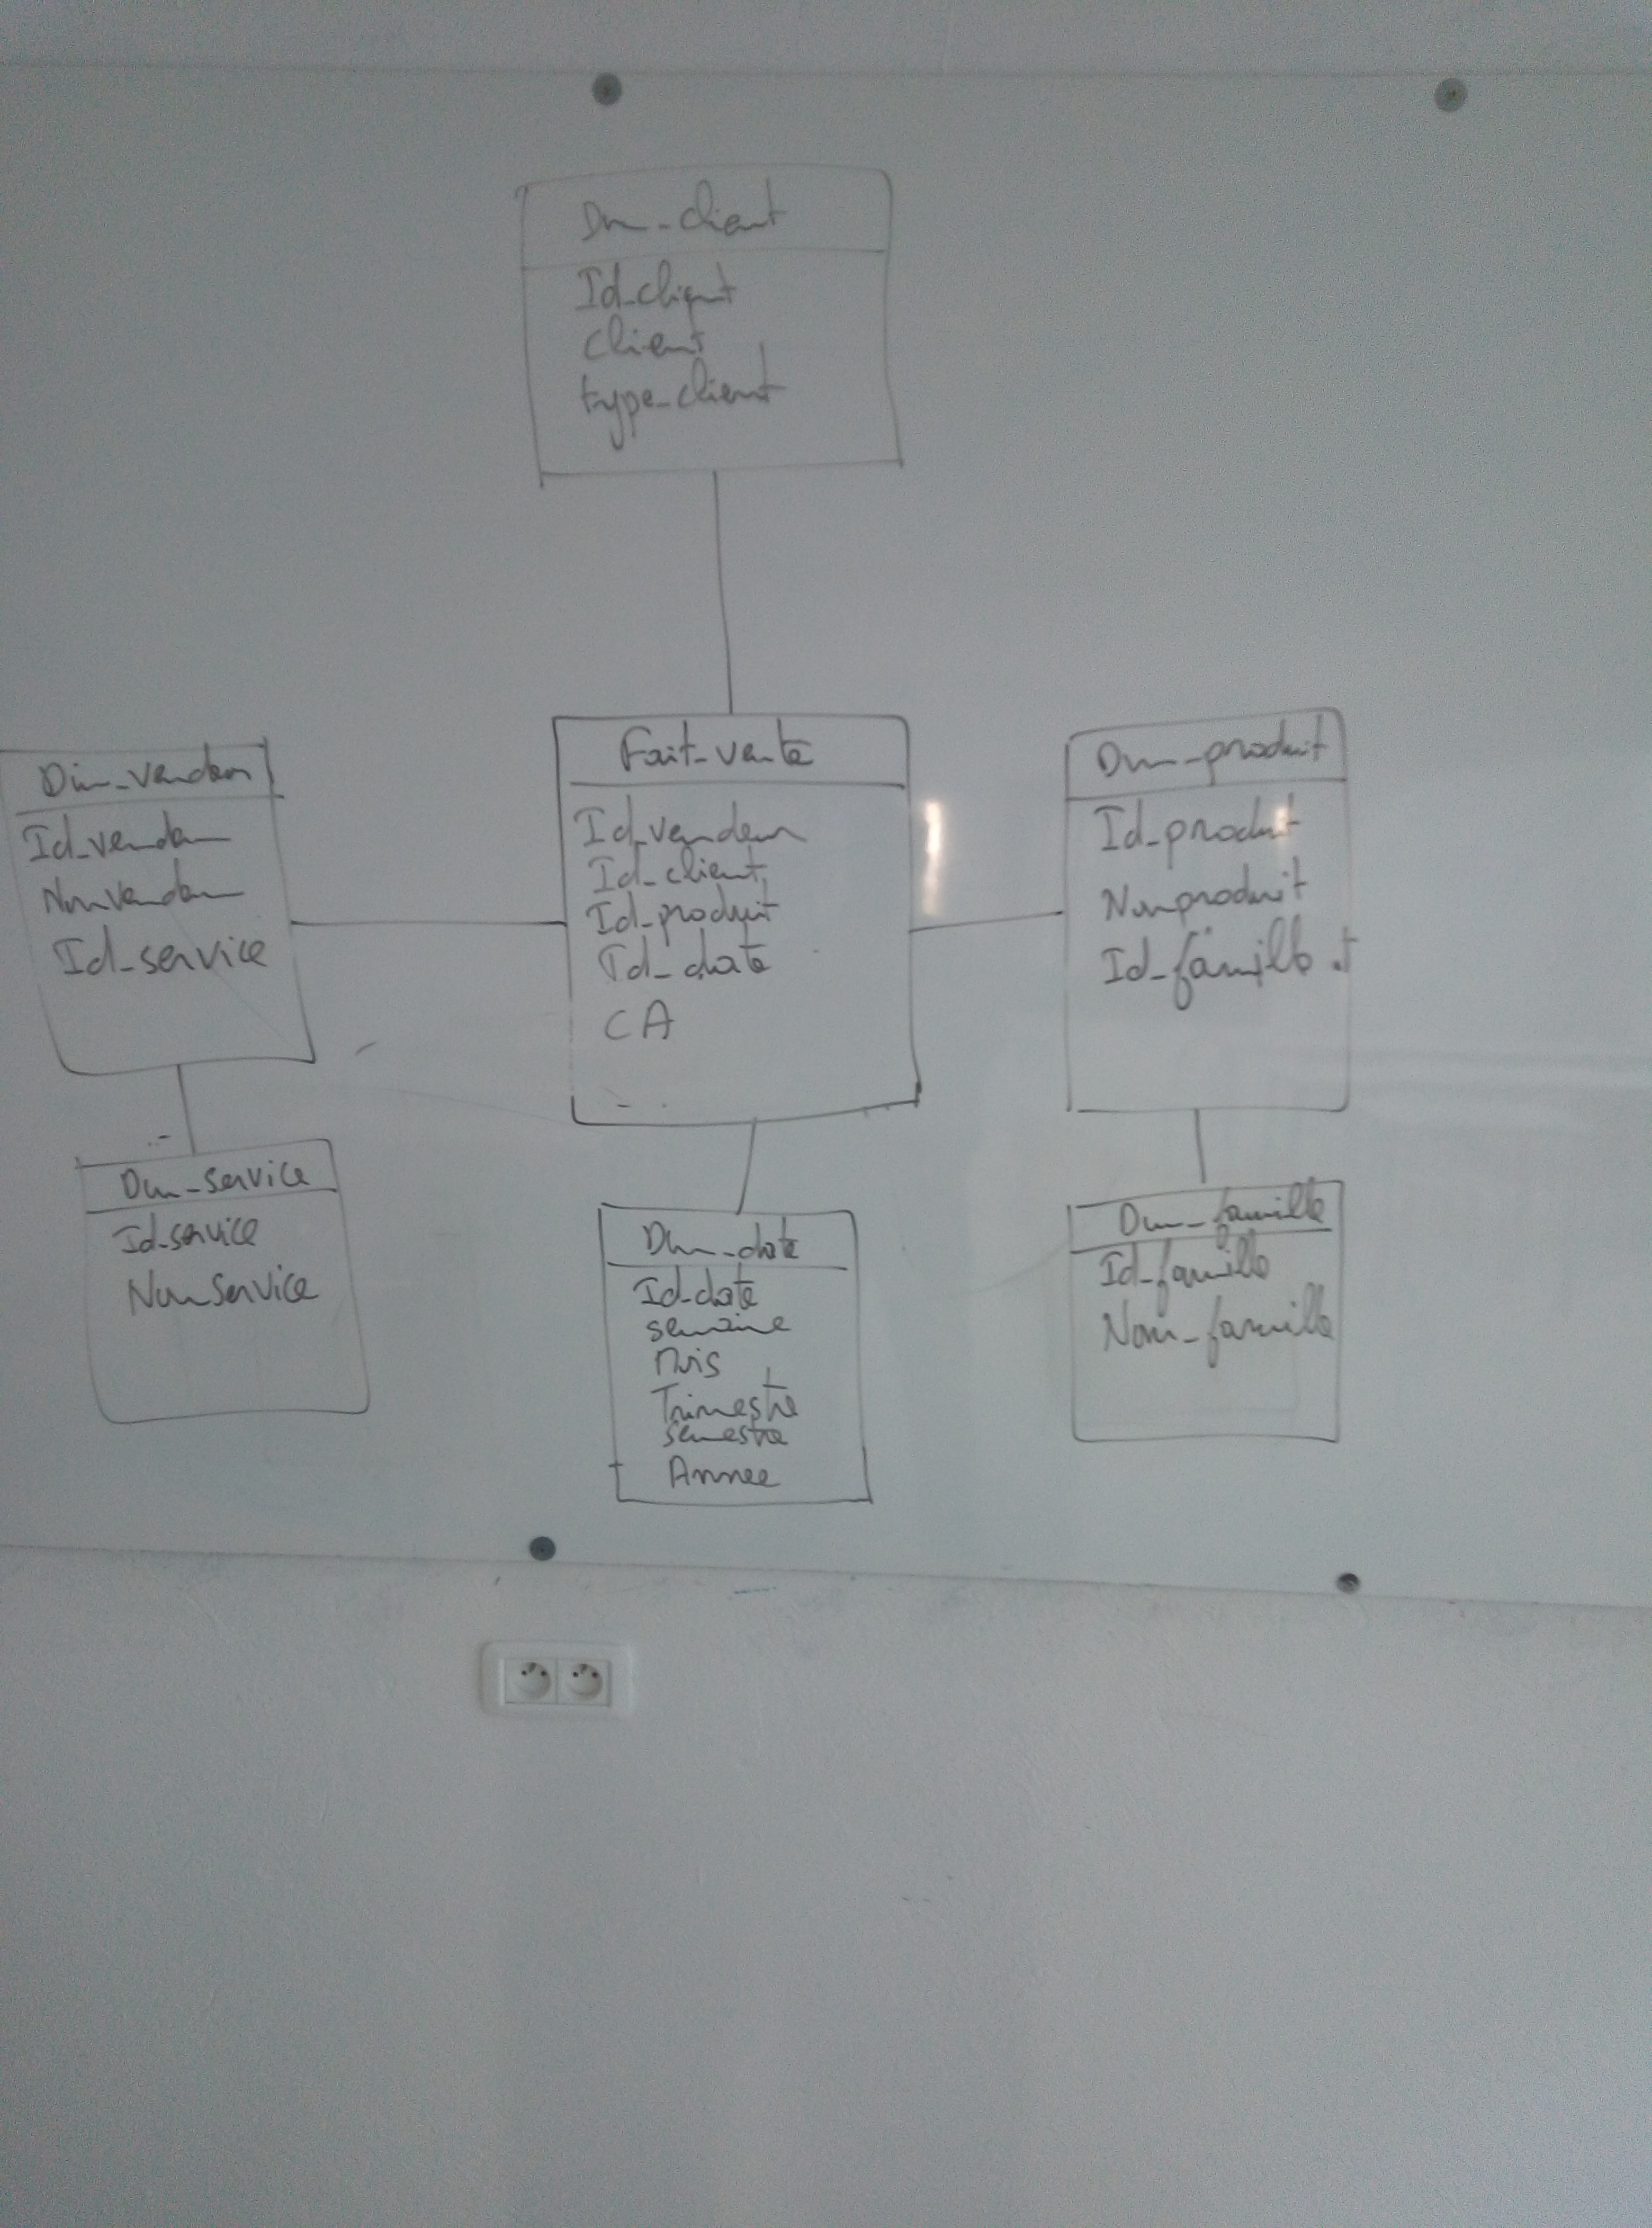 Dim_client
Id_client
client
type_client
Dim_vendeur
Id_vendeur
Nomvendeur
Id_service
Fait_vente
Id_vendeur
Id_client
Id_produit
Id_date
CA
Dim_produit
Id_produit
Nomproduit
Id_famille
Dim_service
Id_service
Nomservice
Dim_date
Id_date
semaine
Mois
Trimestre
semestre
Annee
Dim_famille
Id_famille
Nom_famille